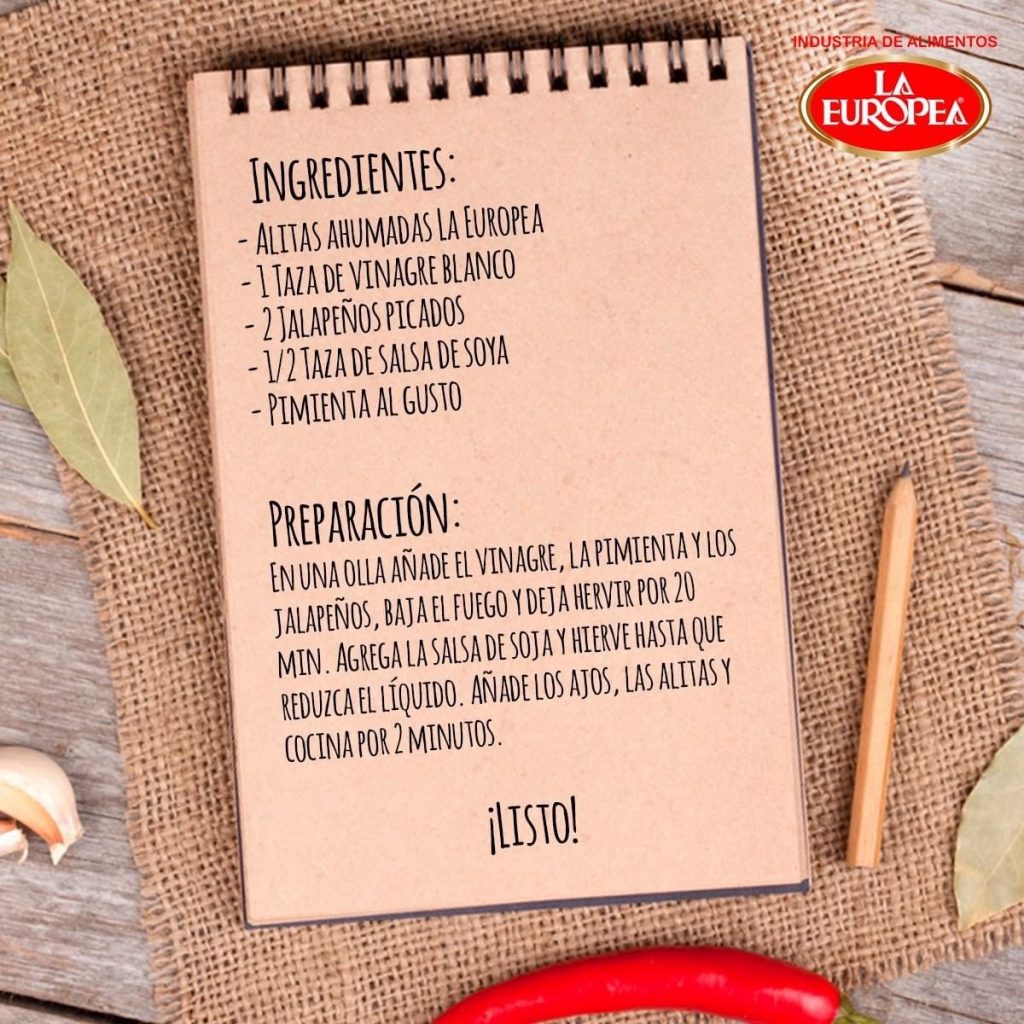 INDUSTRIA DE ALIMENTOS
LA
EUROPEA®
INGREDIENTES:
- ALITAS AHUMADAS LA EUROPEA
- 1 TAZA DE VINAGRE BLANCO
- 2 JALAPEÑOS PICADOS
- 1/2 TAZA DE SALSA DE SOYA
- PIMIENTA AL GUSTO
PREPARACIÓN:
EN UNA OLLA AÑADE EL VINAGRE, LA PIMIENTA Y LOS
JALAPEÑOS, BAJA EL FUEGO Y DEJA HERVIR POR 20
MIN. AGREGA LA SALSA DE SOJA Y HIERVE HASTA QUE
REDUZCA EL LÍQUIDO. AÑADE LOS AJOS, LAS ALITAS Y
COCINA POR 2 MINUTOS.
¡LISTO!